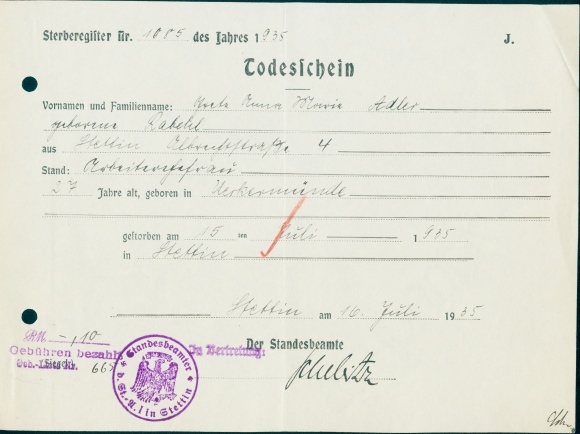 Sterberegister Nr. 1085 des Jahres 1935 J.
Todesschein
Vornamen und Familienname: Grete Anna Maria Adler
geborene Rabehl
aus Stettin Albrechtstraße 4
Stand: Arbeiterehefrau
27 Jahre alt, geboren in Ueckermünde
gestorben am 15 ten Juli 1935
in Stettin
Stettin am 16. Juli 1935
RM. -,10
Gebühren bezahlt
(Siegel)
Geb.-Liste Nr. 665
Standesbeamter
d. St.-A. I in Stettin
In Vertretung:
Der Standesbeamte